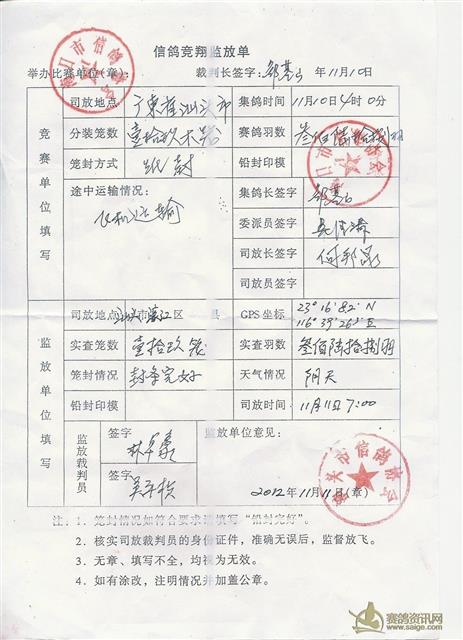 信鸽竞翔监放单
举办比赛单位(章): 裁判长签字: 年11月10日
竞赛单位填写
司放地点 广东省汕头市 集鸽时间 11月10日4时0分
分装笼数 壹拾玖木笼 赛鸽羽数 叁佰陆拾捌羽
笼封方式 纸封 铅封印模
途中运输情况: 集鸽长签字
飞机运输 委派员签字
司放长签字
司放员签字
监放单位填写
司放地点 汕头市濠江区 县 GPS坐标 23°16′82″N
116°39′263″E
实查笼数 壹拾玖笼 实查羽数 叁佰陆拾捌羽
笼封情况 封条完好 天气情况 阴天
铅封印模 司放时间 11月11日7:00
监放裁判员 签字 监放单位意见:
签字
2012年11月11日(章)
注: 1. 笼封情况如符合要求请填写“铅封完好”。
2. 核实司放裁判员的身份证件,准确无误后,监督放飞。
3. 无章、填写不全,均视为无效。
4. 如有涂改,注明情况并加盖公章。
汕头市信鸽协会
赛鸽资讯网
www.saige.com